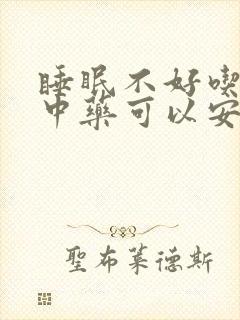 睡眠不好喫
中藥可以安
聖布萊德斯